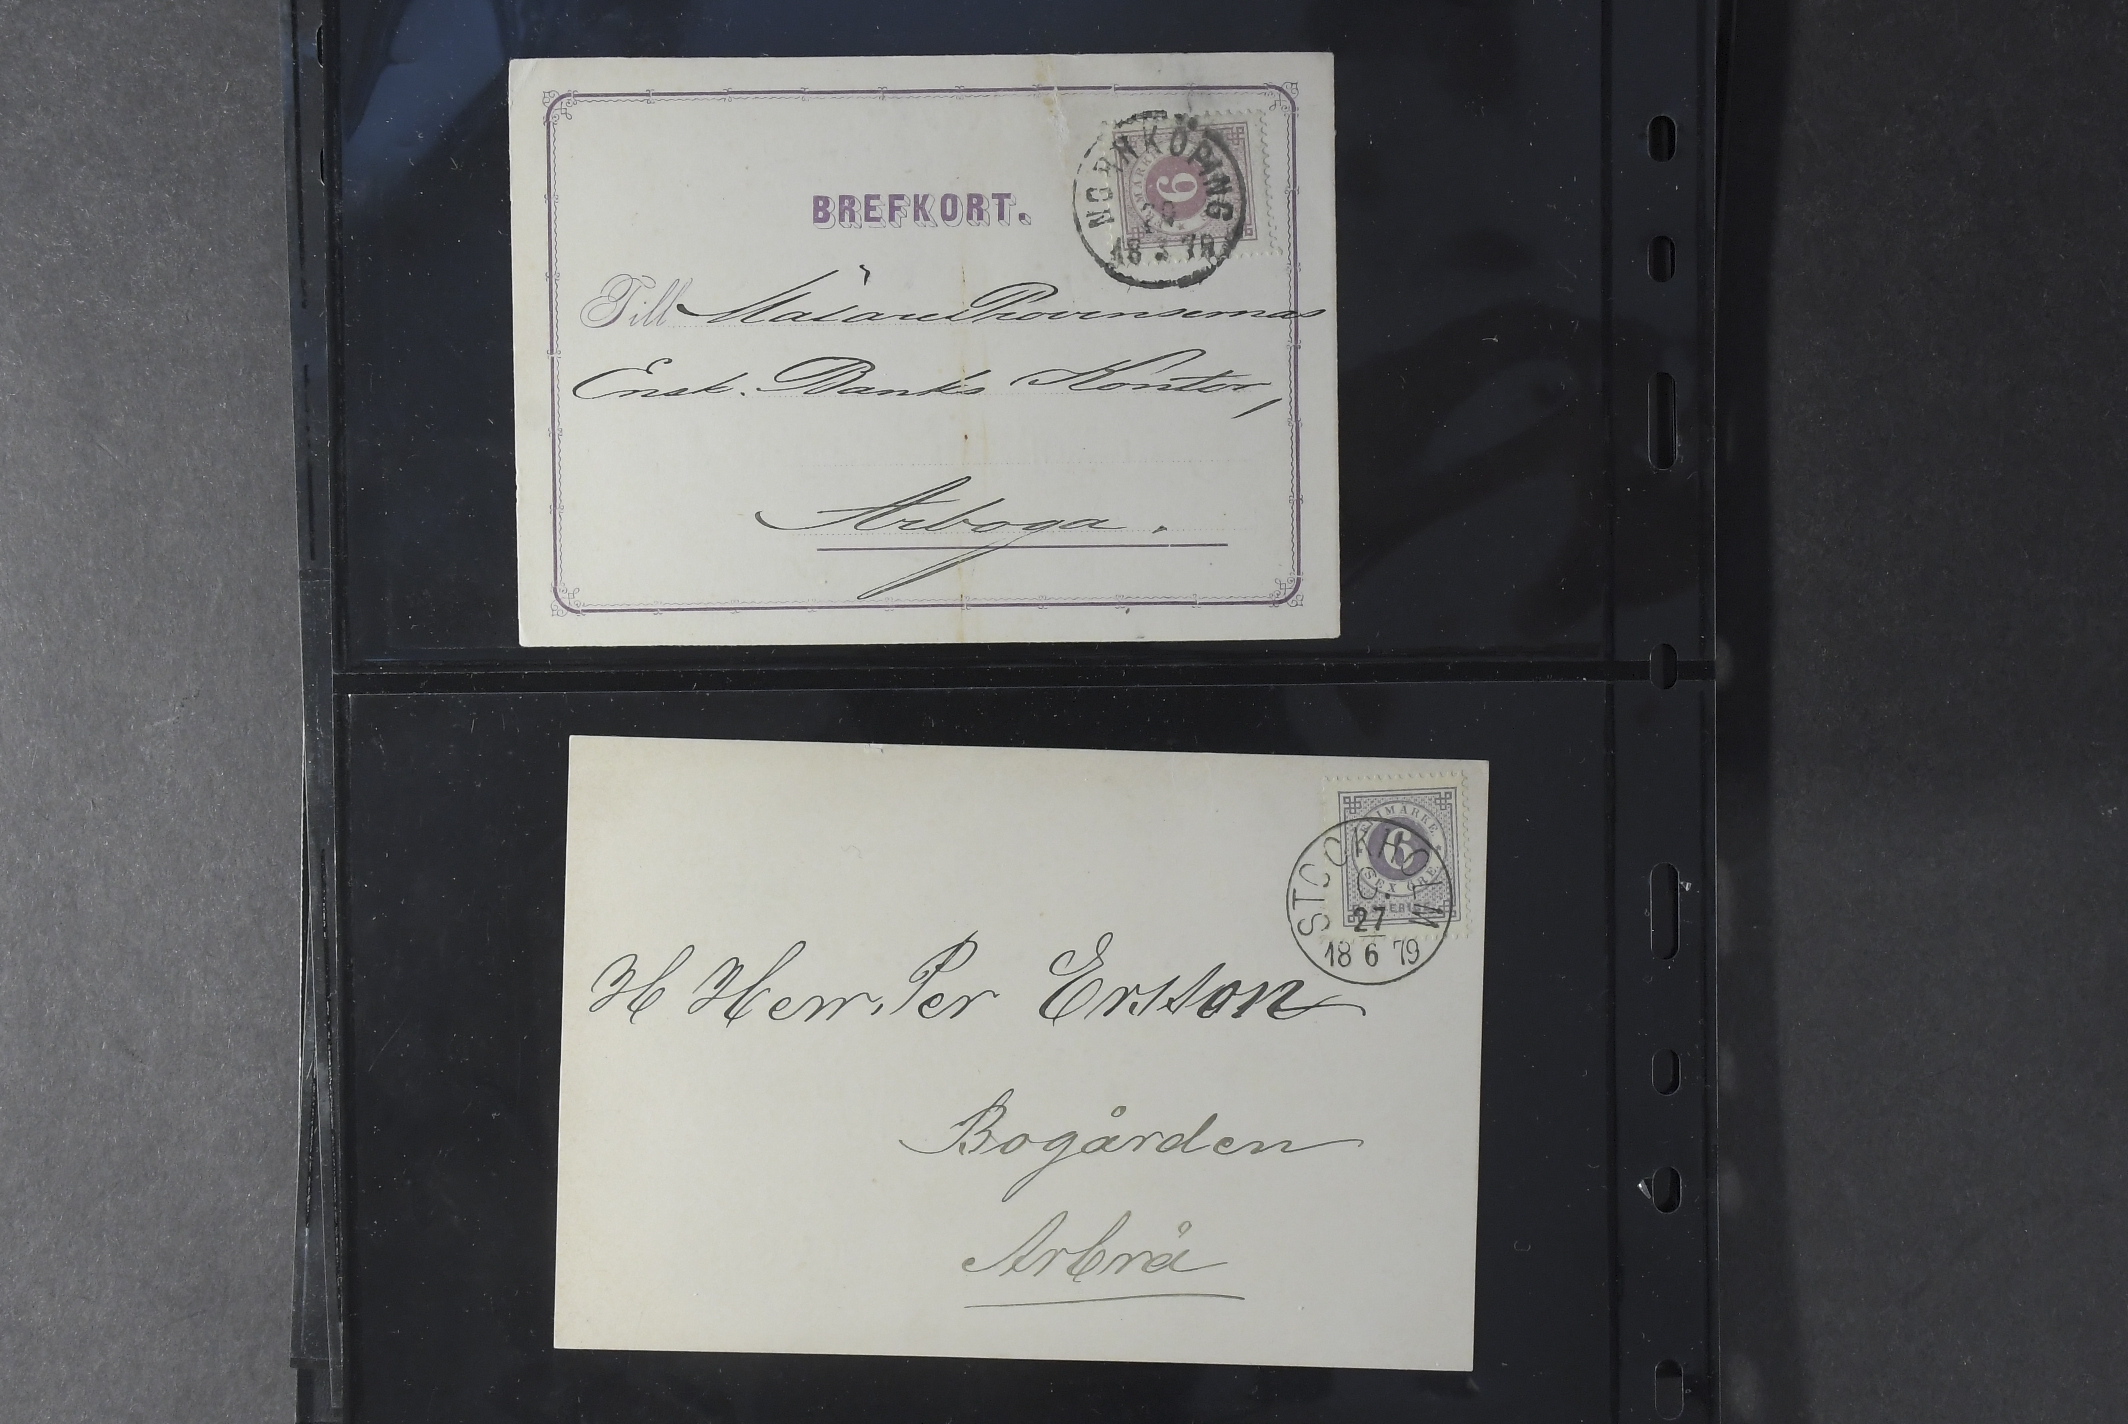 BREFKORT.
NORRKÖPING
18 3 79
6
Till Mälare Provinsernas
Ensk. Banks Kontor,
Arboga.
FRIMÄRKE
6
SEX ÖRE
SVERIGE
STOCKHOLM
C.
27
18 6 79
H Herr. Per Ersson
Bogården
Arbrå